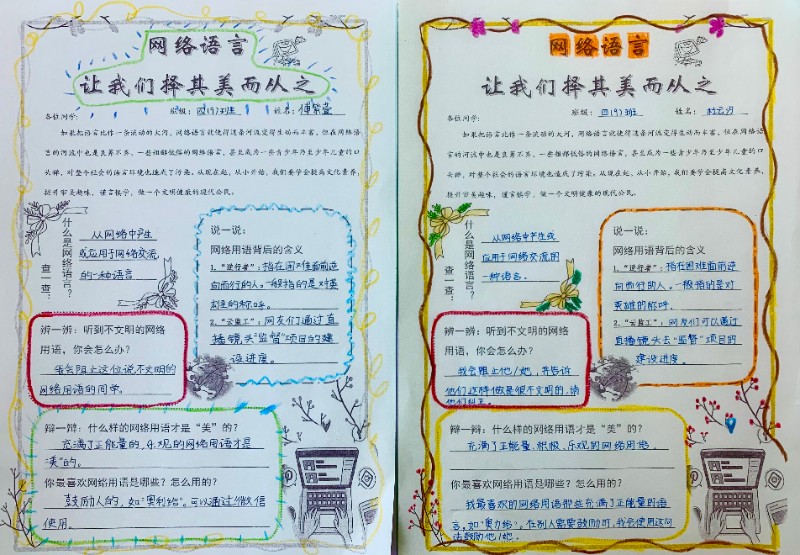 网络语言
让我们择其美而从之
班级：四(9)班 姓名：傅紫萱
各位同学：
如果把语言比作一条流动的大河，网络语言就使得这条河流变得生动而丰富。但在网络语
言的河流中也是良莠不齐，一些粗鄙低俗的网络语言，甚至成为一些青少年乃至少年儿童的口
头禅，对整个社会的语言环境也造成了污染。从现在起，从小开始，我们要学会提高文化素养，
提升审美趣味，谨言慎学，做一个文明健康的现代公民。
查一查：
什么是网络语言？
从网络中产生
或应用于网络交流
的一种语言
说一说：
网络用语背后的含义
1、“逆行者”：指在困难面前逆
向而行的人。一般指的是对英
雄的称呼。
2、“云监工”：网友们通过直
播镜头“监督”项目的建
设进度。
辨一辨：听到不文明的网络
用语，你会怎么办？
我会阻止这位说不文明的
网络用语的同学。
辩一辩：什么样的网络用语才是“美”的？
充满了正能量的，乐观的网络用语才是
“美”的。
你最喜欢网络用语是哪些？怎么用的？
鼓励人的，如“奥利给”。可以通过微信
使用。
网络语言
让我们择其美而从之
班级：四(9)班 姓名：
各位同学：
如果把语言比作一条流动的大河，网络语言就使得这条河流变得生动而丰富。但在网络语
言的河流中也是良莠不齐，一些粗鄙低俗的网络语言，甚至成为一些青少年乃至少年儿童的口
头禅，对整个社会的语言环境也造成了污染。从现在起，从小开始，我们要学会提高文化素养，
提升审美趣味，谨言慎学，做一个文明健康的现代公民。
查一查：
什么是网络语言？
从网络中产生或
应用于网络交流的
一种语言。
说一说：
网络用语背后的含义
1、“逆行者”：指在困难面前逆
向而行的人。一般指的是对
英雄的称呼。
2、“云监工”：网友们可以通过
直播镜头去“监督”项目的
建设进度。
辨一辨：听到不文明的网络
用语，你会怎么办？
我会阻止他/她，并告诉
他们这样做是很不文明的，请
他们纠正。
辩一辩：什么样的网络用语才是“美”的？
充满了正能量、积极、乐观的网络用语。
你最喜欢网络用语是哪些？怎么用的？
我最喜欢的网络用语那些充满了正能量的语
言，如“奥力给”，在别人需要鼓励时，我会使用这句
话鼓励他/她。